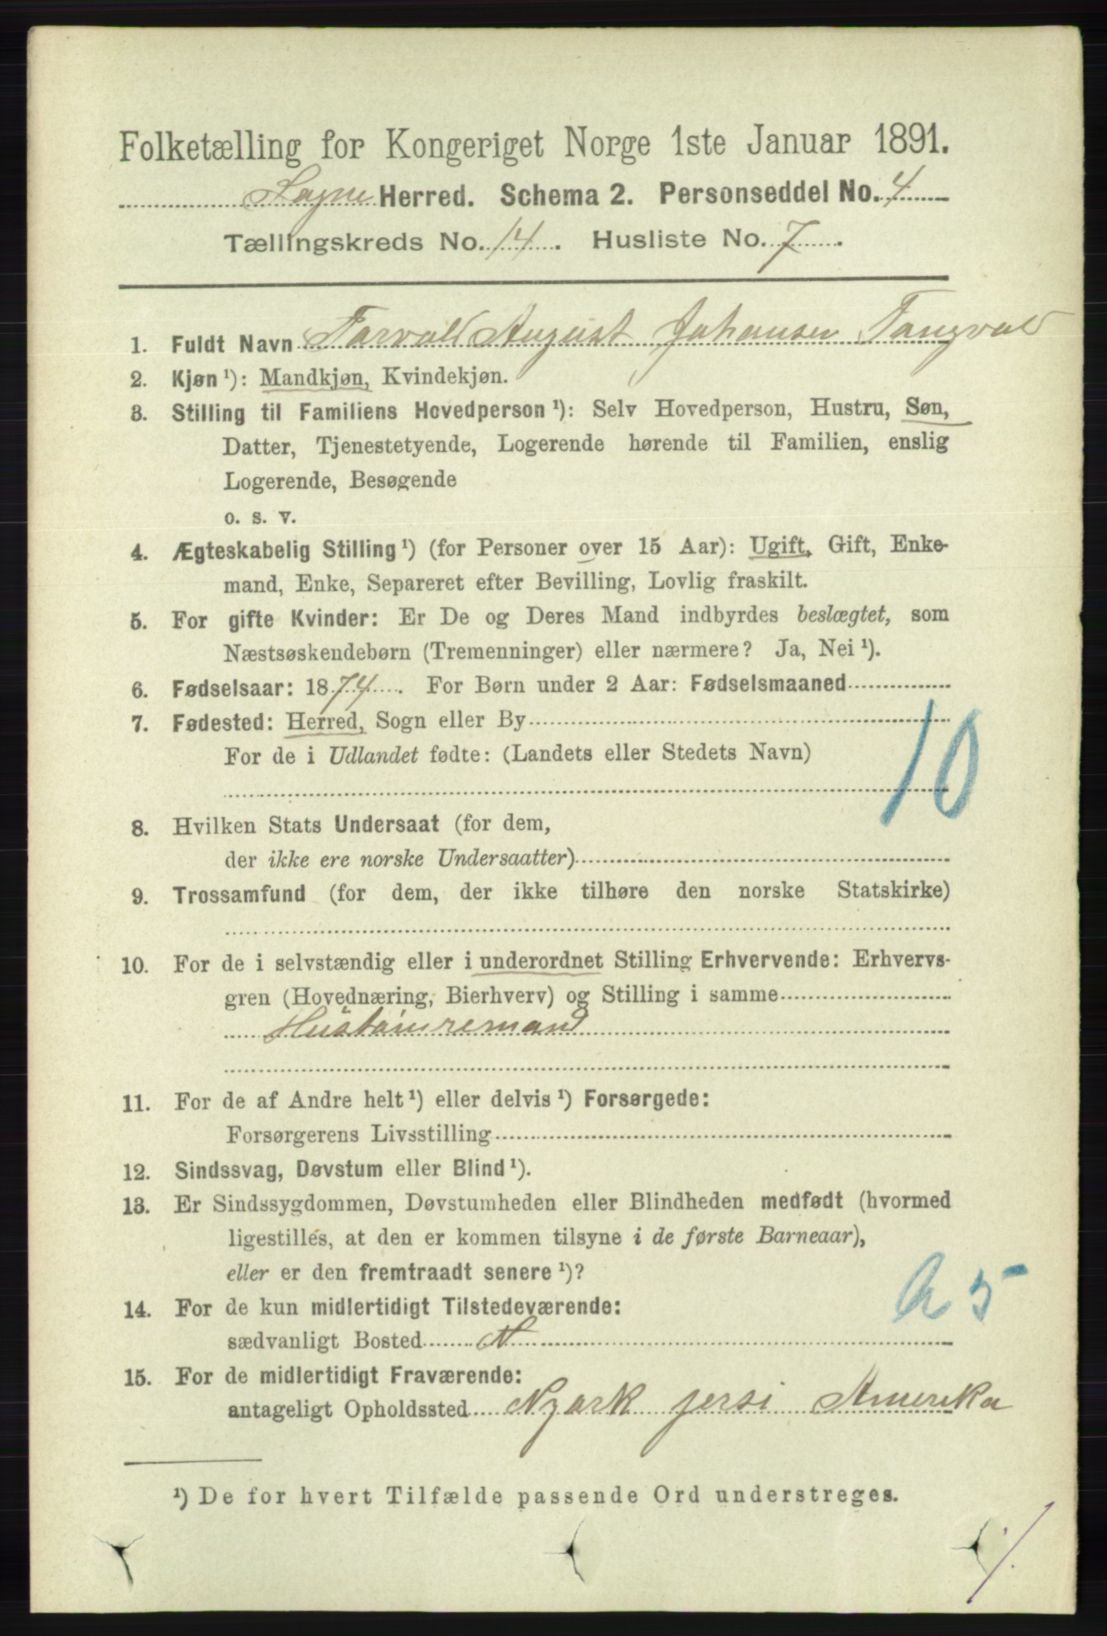 Folketælling for Kongeriget Norge 1ste Januar 1891.
Søgne Herred. Schema 2. Personseddel No. 4
Tællingskreds No. 14. Husliste No. 7.
1. Fuldt Navn Torvald August Johansen Tangvald
2. Kjøn ¹): Mandkjøn, Kvindekjøn.
3. Stilling til Familiens Hovedperson ¹): Selv Hovedperson, Hustru, Søn,
Datter, Tjenestetyende, Logerende hørende til Familien, enslig
Logerende, Besøgende
o. s. v.
4. Ægteskabelig Stilling ¹) (for Personer over 15 Aar): Ugift, Gift, Enke-
mand, Enke, Separeret efter Bevilling, Lovlig fraskilt.
5. For gifte Kvinder: Er De og Deres Mand indbyrdes beslægtet, som
Næstsøskendebørn (Tremenninger) eller nærmere? Ja, Nei ¹).
6. Fødselsaar: 1874. For Børn under 2 Aar: Fødselsmaaned
7. Fødested: Herred, Sogn eller By
For de i Udlandet fødte: (Landets eller Stedets Navn)
10
8. Hvilken Stats Undersaat (for dem,
der ikke ere norske Undersaatter)
9. Trossamfund (for dem, der ikke tilhøre den norske Statskirke)
10. For de i selvstændig eller i underordnet Stilling Erhvervende: Erhvervs-
gren (Hovednæring, Bierhverv) og Stilling i samme
Hustømremand
11. For de af Andre helt ¹) eller delvis ¹) Forsørgede:
Forsørgerens Livsstilling
12. Sindssvag, Døvstum eller Blind ¹).
13. Er Sindssygdommen, Døvstumheden eller Blindheden medfødt (hvormed
ligestilles, at den er kommen tilsyne i de første Barneaar),
eller er den fremtraadt senere ¹)?
14. For de kun midlertidigt Tilstedeværende:
sædvanligt Bosted
15. For de midlertidigt Fraværende:
antageligt Opholdssted Nyork jersi Amerika
¹) De for hvert Tilfælde passende Ord understreges.